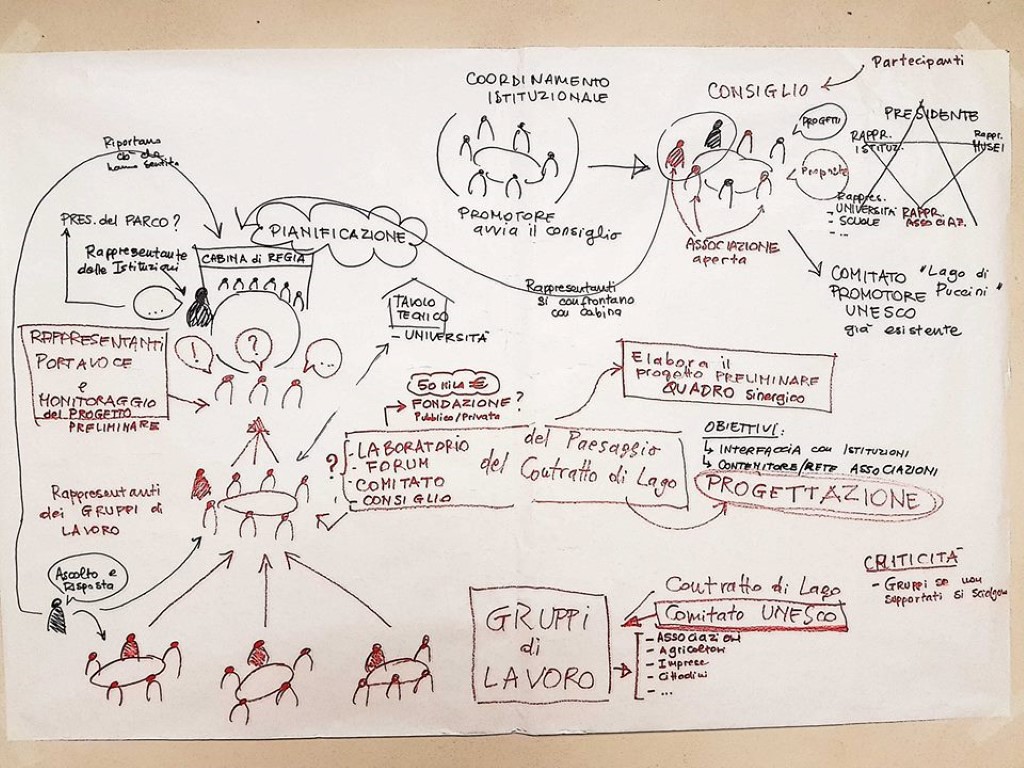 COORDINAMENTO
ISTITUZIONALE
PROMOTORE
avvia il consiglio
CONSIGLIO
Partecipanti
PROGETTI
Proposte
PRESIDENTE
RAPPR.
ISTITUZ.
Rappr.
MUSEI
Rappres.
- UNIVERSITÀ
- SCUOLE
- ...
RAPPR.
ASSOCIAZ.
ASSOCIAZIONE
aperta
COMITATO "Lago di
PROMOTORE Puccini"
UNESCO
già esistente
Riportano
ciò che
hanno sentito
PRES. del PARCO?
Rappresentante
delle Istituzioni
...
PIANIFICAZIONE
CABINA di REGIA
Rappresentanti
si confrontano
con cabina
TAVOLO
TECNICO
- UNIVERSITÀ
RAPPRESENTANTI
PORTAVOCE
e
MONITORAGGIO
del PROGETTO
PRELIMINARE
!
?
...
50 mila €
FONDAZIONE?
Pubblico/Privata
Elabora il
progetto PRELIMINARE
QUADRO sinergico
?
- LABORATORIO
- FORUM
- COMITATO
- CONSIGLIO
del Paesaggio
del Contratto di Lago
OBIETTIVI:
↳ INTERFACCIA con ISTITUZIONI
↳ CONTENITORE/RETE ASSOCIAZIONI
PROGETTAZIONE
Rappresentanti
dei GRUPPI di
LAVORO
Ascolto e
Risposta
GRUPPI
di
LAVORO
Contratto di Lago
Comitato UNESCO
- ASSOCIAZIONI
- Agricoltori
- Imprese
- Cittadini
- ...
CRITICITÀ
- GRUPPI se non
supportati si sciolgono